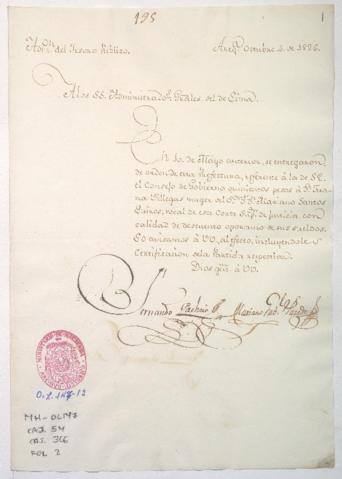 195
1
Adm.on del Tesoro Publico.
Areq.a Octubre 2. de 1826.
A los SS. Administrador.s Grales. del de Lima.
En 10. de Mayo anterior, se entregaron
de orden de esta Prefectura, referente à la de S.E.
el Consejo de Gobierno quinientos pesos à D.a
Villegas muger del D.r D. Mariano Santos
vocal de esta Corte Sup.r de Justicia con
calidad de descuento oportuno de sus sueldos.
Lo avisamos à VV. al efecto, incluyendoles
Certificacion de la Partida respectiva.
Dios gũe. à VV.
Bernardo Pacheco
Mariano
O.L. 147-12
MH-OL147
CAJ. 54
CAS. 366
FOL 2